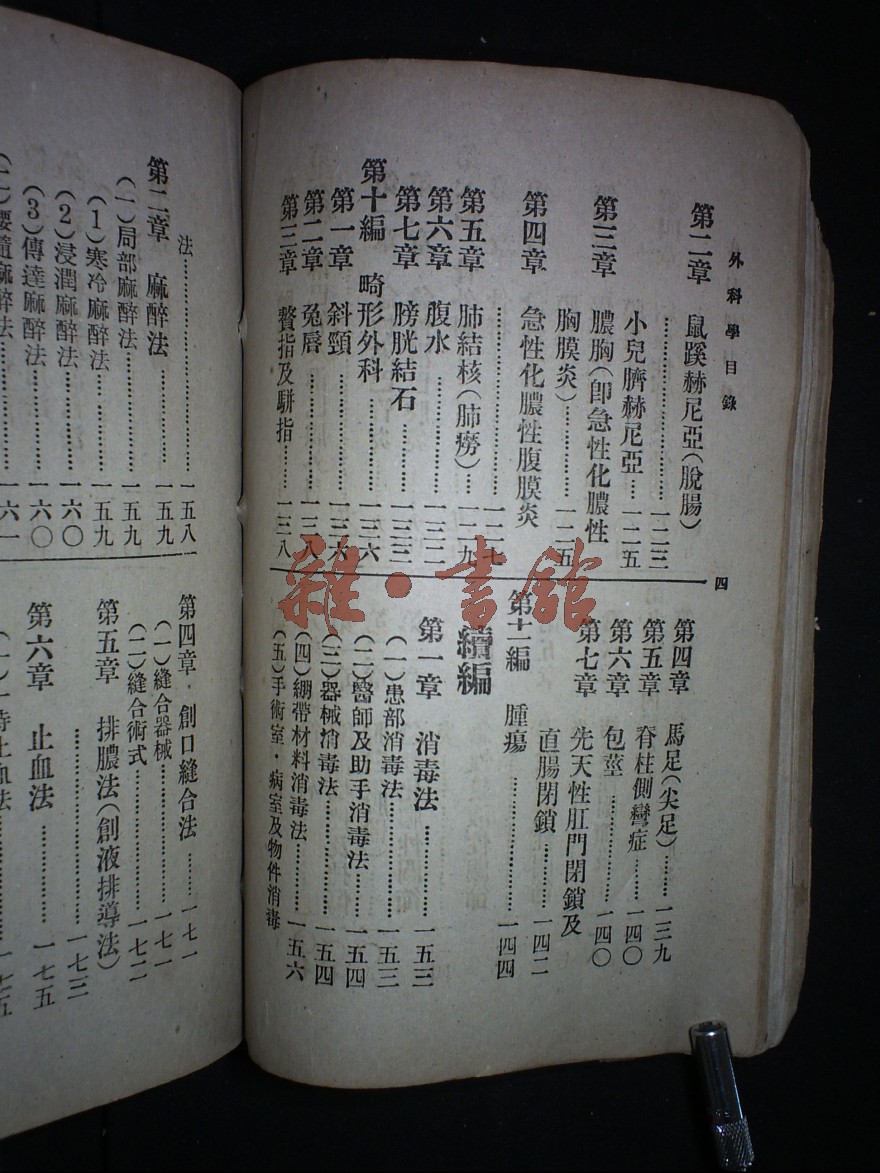 外科學目錄
四
第二章 鼠蹊赫尼亞(脫腸)
…………一二三
小兒臍赫尼亞…一二五
第三章 膿胸(卽急性化膿性
胸膜炎)…………一二五
第四章 急性化膿性腹膜炎
…………一二七
第五章 肺結核(肺癆)…一二九
第六章 腹水…………一三二
第七章 膀胱結石……一三三
第十編 畸形外科…………一三六
第一章 斜頸…………一三六
第二章 兔唇…………一三八
第三章 贅指及駢指……一三八
第四章 馬足(尖足)……一三九
第五章 脊柱側彎症……一四〇
第六章 包莖…………一四〇
第七章 先天性肛門閉鎖及
直腸閉鎖…………一四二
第十一編 腫瘍…………一四四
續編
第一章 消毒法…………一五三
(一)患部消毒法…………一五三
(二)醫師及助手消毒法…一五四
(三)器械消毒法…………一五四
(四)綳帶材料消毒法……一五六
(五)手術室·病室及物件消毒
法…………一五八
第二章 麻醉法…………一五九
(一)局部麻醉法…………一五九
(1)寒冷麻醉法…………一五九
(2)浸潤麻醉法…………一六〇
(3)傳達麻醉法…………一六〇
麻醉法…………一六一
第四章 創口縫合法……一七一
(一)縫合器械…………一七一
(二)縫合術式…………一七二
第五章 排膿法(創液排導法)
…………一七三
第六章 止血法…………一七五
止血法…………一七五
雜·書館